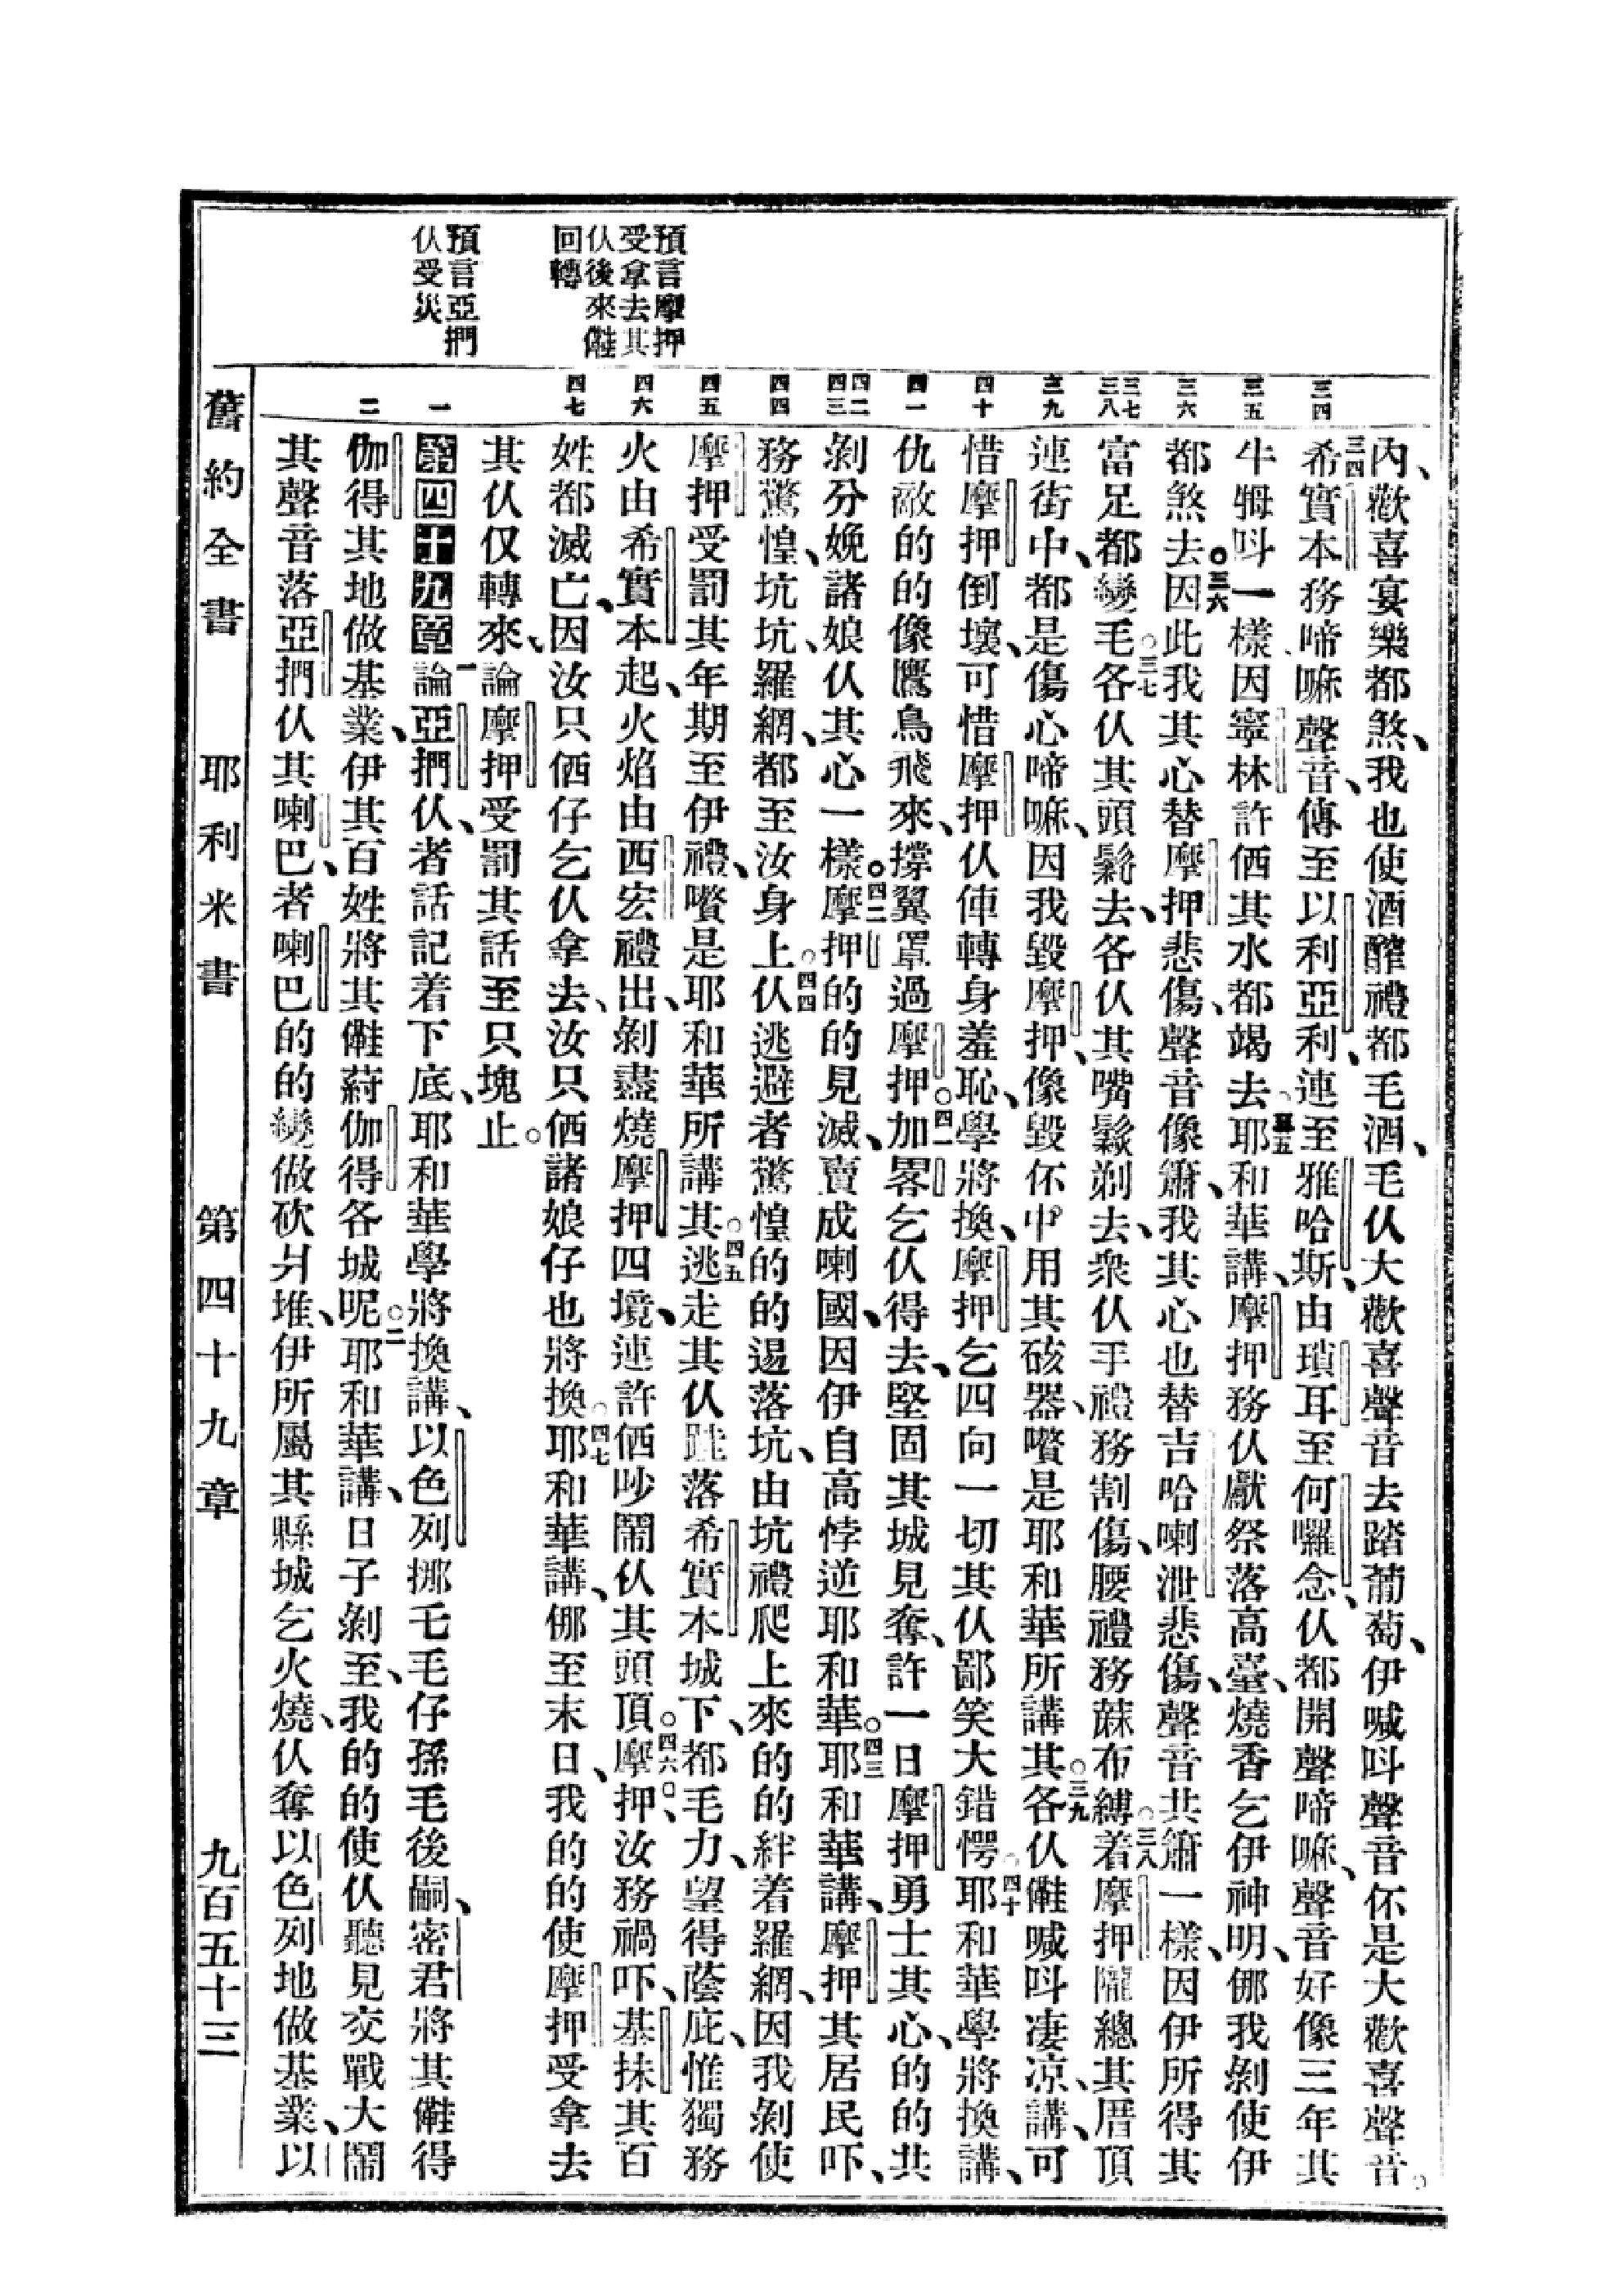 預言摩押
受拿去其
仏後來𠆧
回轉
預言亞捫
仏受災
三四
三五
三六
三七
三八
三九
四十
四一
四二
四三
四四
四五
四六
四七
一
二
內、歡喜宴樂都煞、我也使酒醡禮都毛酒、毛仏大歡喜聲音去踏葡萄、伊喊呌聲音伓是大歡喜聲音。
三四希實本務啼嘛聲音、傳至以利亞利、連至雅哈斯、由瑣耳至何囉念、仏都開聲啼嘛、聲音好像三年其
牛㛂呌一樣、因寧林許伷其水都竭去。三五耶和華講、摩押務仏獻祭落高臺、燒香乞伊神明、㑚我剝使伊
都煞去。三六因此我其心替摩押悲傷、聲音像簫、我其心也替吉哈喇泄悲傷、聲音共簫一樣、因伊所得其
富足都變毛。三七各仏其頭鬏去、各仏其嘴鬚剃去、衆仏手禮務割傷、腰禮務蔴布縛着。三八摩押隴總其厝頂
連街中、都是傷心啼嘛、因我毀摩押、像毀伓中用其硋器、嚽是耶和華所講其。三九各仏𠆧喊呌凄凉、講、可
惜摩押倒壞、可惜摩押仏俥轉身羞恥、學將換、摩押乞四向一切其仏鄙笑大錯愕。四十耶和華學將換講、
仇敵的的像鷹鳥飛來、撐翼罩過摩押。四一加畧乞仏得去、堅固其城見奪、許一日摩押勇士其心、的的共
剝分娩諸娘仏其心一樣。四二摩押的的見滅、賣成喇國、因伊自高悖逆耶和華。四三耶和華講、摩押其居民吓、
務驚惶、坑坑、羅網、都至汝身上。四四仏逃避者驚惶的的逿落坑、由坑禮爬上來的的絆着羅網、因我剝使
摩押受罰其年期至伊禮、嚽是耶和華所講其。四五逃走其仏跬落希實本城下、都毛力、望得蔭庇、惟獨務
火由希實本起、火焰由西宏禮出、剝盡燒摩押四境、連許伷吵鬧仏其頭頂。四六摩押汝務禍吓、基抹其百
姓都滅亡、因汝只伷仔乞仏拿去、汝只伷諸娘仔也將換。四七耶和華講、㑚至末日、我的的使摩押受拿去
其仏仅轉來、論摩押受罰其話至只塊止。
第四十九章一論亞捫仏、者話記着下底、耶和華學將換講、以色列挪毛毛仔孫毛後嗣、密君將其𠆧得
伽得其地做基業、伊其百姓將其𠆧蒞伽得各城呢。二耶和華講、日子剝至、我的的使仏聽見交戰大鬧
其聲音落亞捫仏其喇巴、者喇巴的的變做砍爿堆、伊所屬其縣城乞火燒、仏奪以色列地做基業、以
舊約全書 耶利米書 第四十九章 九百五十三